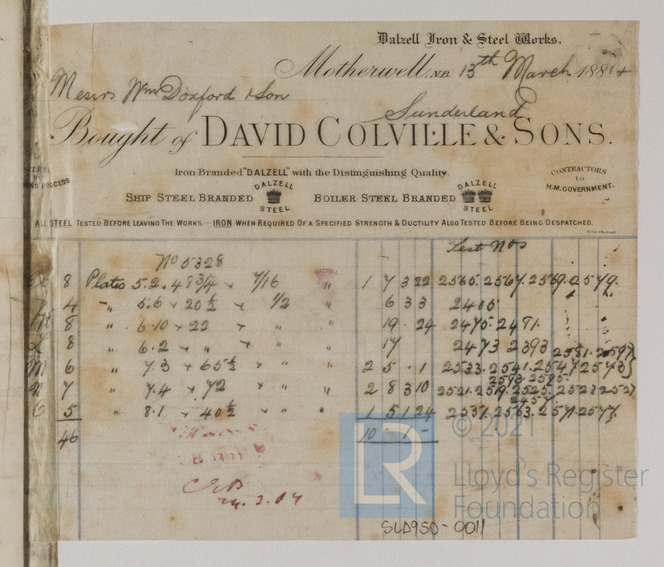 Dalzell Iron & Steel Works.
Motherwell, N.B. 13th March 1884
Messrs Wm Doxford & Son
Sunderland
Bought of DAVID COLVILLE & SONS.
Iron Branded "DALZELL" with the Distinguishing Quality.
CONTRACTORS
to
H.M. GOVERNMENT.
SHIP STEEL BRANDED DALZELL STEEL BOILER STEEL BRANDED DALZELL STEEL
ALL STEEL TESTED BEFORE LEAVING THE WORKS.—IRON WHEN REQUIRED OF A SPECIFIED STRENGTH & DUCTILITY ALSO TESTED BEFORE BEING DESPATCHED.
Test Nos
No 5328
8 Plates 5.2 × 48 3/4 × 7/16 " 1 7 3 22 2565.2567.2569.2579.
4 " 5.6 × 20 1/2 × 1/2 " 6 3 3 2405
8 " 6.10 × 22 × " " 19 . 24 2475.2471.
8 " 6.2 × " × " " 17 2473 2393 2581.2597
6 " 7.3 × 65 1/2 × " " 2 5 . 1 2533.2541.2547 2573
2593.2595.
7 " 7.4 × 72 × " " 2 8 3 10 2521.2519.2525.2523 2527
5 " 8.1 × 40 1/2 × " " 1 5 1 24 2537.2563.2571.2577.
46 10 . 1 -
24.3.84
© 2021
LR
Lloyd's Register
Foundation
SLD950-0011